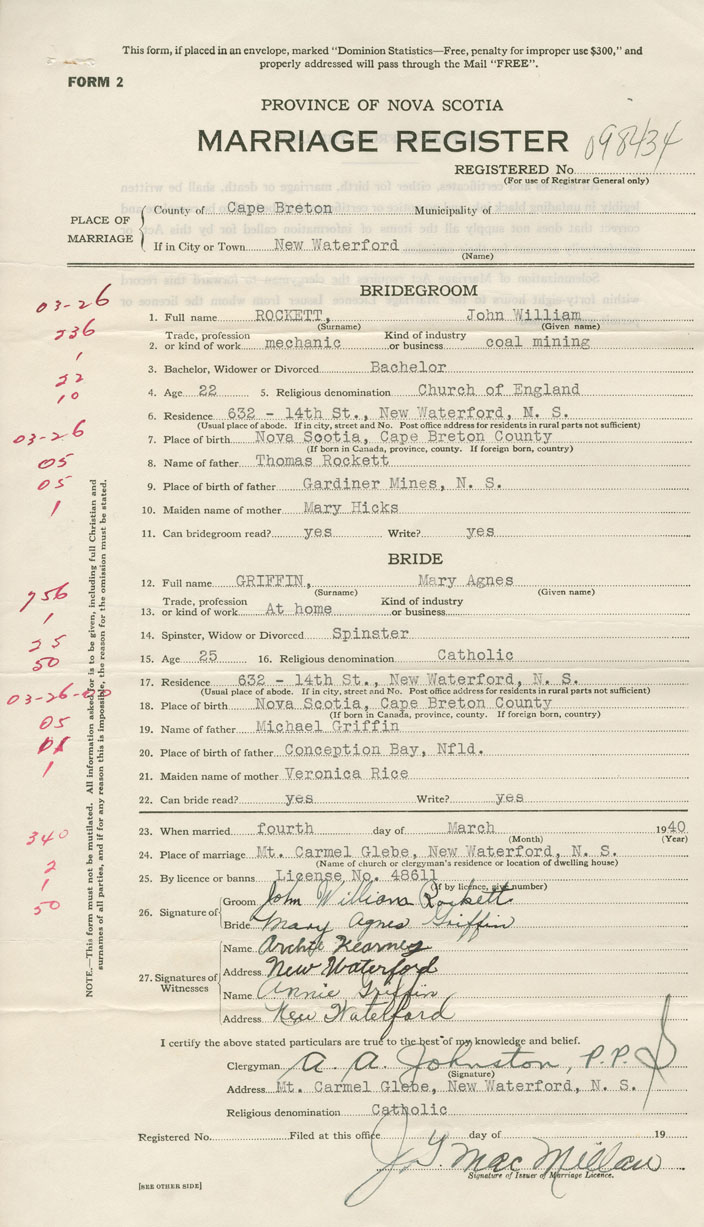 This form, if placed in an envelope, marked "Dominion Statistics—Free, penalty for improper use $300," and
properly addressed will pass through the Mail "FREE".
FORM 2
PROVINCE OF NOVA SCOTIA
MARRIAGE REGISTER
098434
REGISTERED No.
(For use of Registrar General only)
PLACE OF MARRIAGE
County of Cape Breton Municipality of
If in City or Town New Waterford
(Name)
BRIDEGROOM
03-26
1. Full name ROCKETT, John William
(Surname) (Given name)
236
2. Trade, profession or kind of work mechanic Kind of industry or business coal mining
1
3. Bachelor, Widower or Divorced Bachelor
22
4. Age 22 5. Religious denomination Church of England
10
6. Residence 632 - 14th St., New Waterford, N. S.
(Usual place of abode. If in city, street and No. Post office address for residents in rural parts not sufficient)
03-26
7. Place of birth Nova Scotia, Cape Breton County
(If born in Canada, province, county. If foreign born, country)
05
8. Name of father Thomas Rockett
05
9. Place of birth of father Gardiner Mines, N. S.
1
10. Maiden name of mother Mary Hicks
11. Can bridegroom read? yes Write? yes
BRIDE
12. Full name GRIFFIN, Mary Agnes
(Surname) (Given name)
956
13. Trade, profession or kind of work At home Kind of industry or business
1
14. Spinster, Widow or Divorced Spinster
25
15. Age 25 16. Religious denomination Catholic
50
17. Residence 632 - 14th St., New Waterford, N. S.
(Usual place of abode. If in city, street and No. Post office address for residents in rural parts not sufficient)
03-26
18. Place of birth Nova Scotia, Cape Breton County
(If born in Canada, province, county. If foreign born, country)
05
19. Name of father Michael Griffin
20. Place of birth of father Conception Bay, Nfld.
1
21. Maiden name of mother Veronica Rice
22. Can bride read? yes Write? yes
23. When married fourth day of March 1940
(Month) (Year)
340
24. Place of marriage Mt. Carmel Glebe, New Waterford, N. S.
(Name of church or clergyman's residence or location of dwelling house)
2
25. By licence or banns License No. 48611
(If by licence, give number)
1
50
26. Signature of
Groom John William Rockett
Bride Mary Agnes Griffin
27. Signatures of Witnesses
Name Archie Kearney
Address New Waterford
Name Annie Griffin
Address New Waterford
I certify the above stated particulars are true to the best of my knowledge and belief.
Clergyman A. A. Johnston, P.P.
(Signature)
Address Mt. Carmel Glebe, New Waterford, N. S.
Religious denomination Catholic
Registered No. Filed at this office day of 19
MacMillan
Signature of Issuer of Marriage Licence.
[SEE OTHER SIDE]
NOTE.—This form must not be mutilated. All information asked for is to be given, including full Christian and
surnames of all parties, and if for any reason this is impossible, the reason for the omission must be stated.